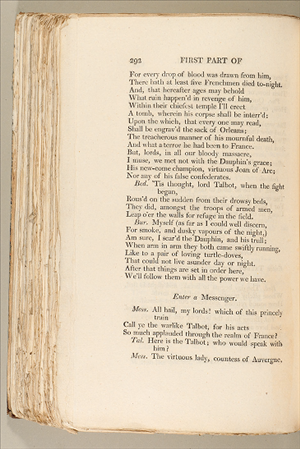 292 FIRST PART OF
For every drop of blood was drawn from him,
There hath at least five Frenchmen died to-night.
And, that hereafter ages may behold
What ruin happen'd in revenge of him,
Within their chiefest temple I'll erect
A tomb, wherein his corpse shall be interr'd:
Upon the which, that every one may read,
Shall be engrav'd the sack of Orleans;
The treacherous manner of his mournful death,
And what a terror he had been to France.
But, lords, in all our bloody massacre,
I muse, we met not with the Dauphin's grace;
His new-come champion, virtuous Joan of Arc;
Nor any of his false confederates.
Bed. 'Tis thought, lord Talbot, when the fight
began,
Rous'd on the sudden from their drowsy beds,
They did, amongst the troops of armed men,
Leap o'er the walls for refuge in the field.
Bur. Myself (as far as I could well discern,
For smoke, and dusky vapours of the night,)
Am sure, I scar'd the Dauphin, and his trull;
When arm in arm they both came swiftly running,
Like to a pair of loving turtle-doves,
That could not live asunder day or night.
After that things are set in order here,
We'll follow them with all the power we have.
Enter a Messenger.
Mess. All hail, my lords! which of this princely
train
Call ye the warlike Talbot, for his acts
So much applauded through the realm of France?
Tal. Here is the Talbot; who would speak with
him?
Mess. The virtuous lady, countess of Auvergne,